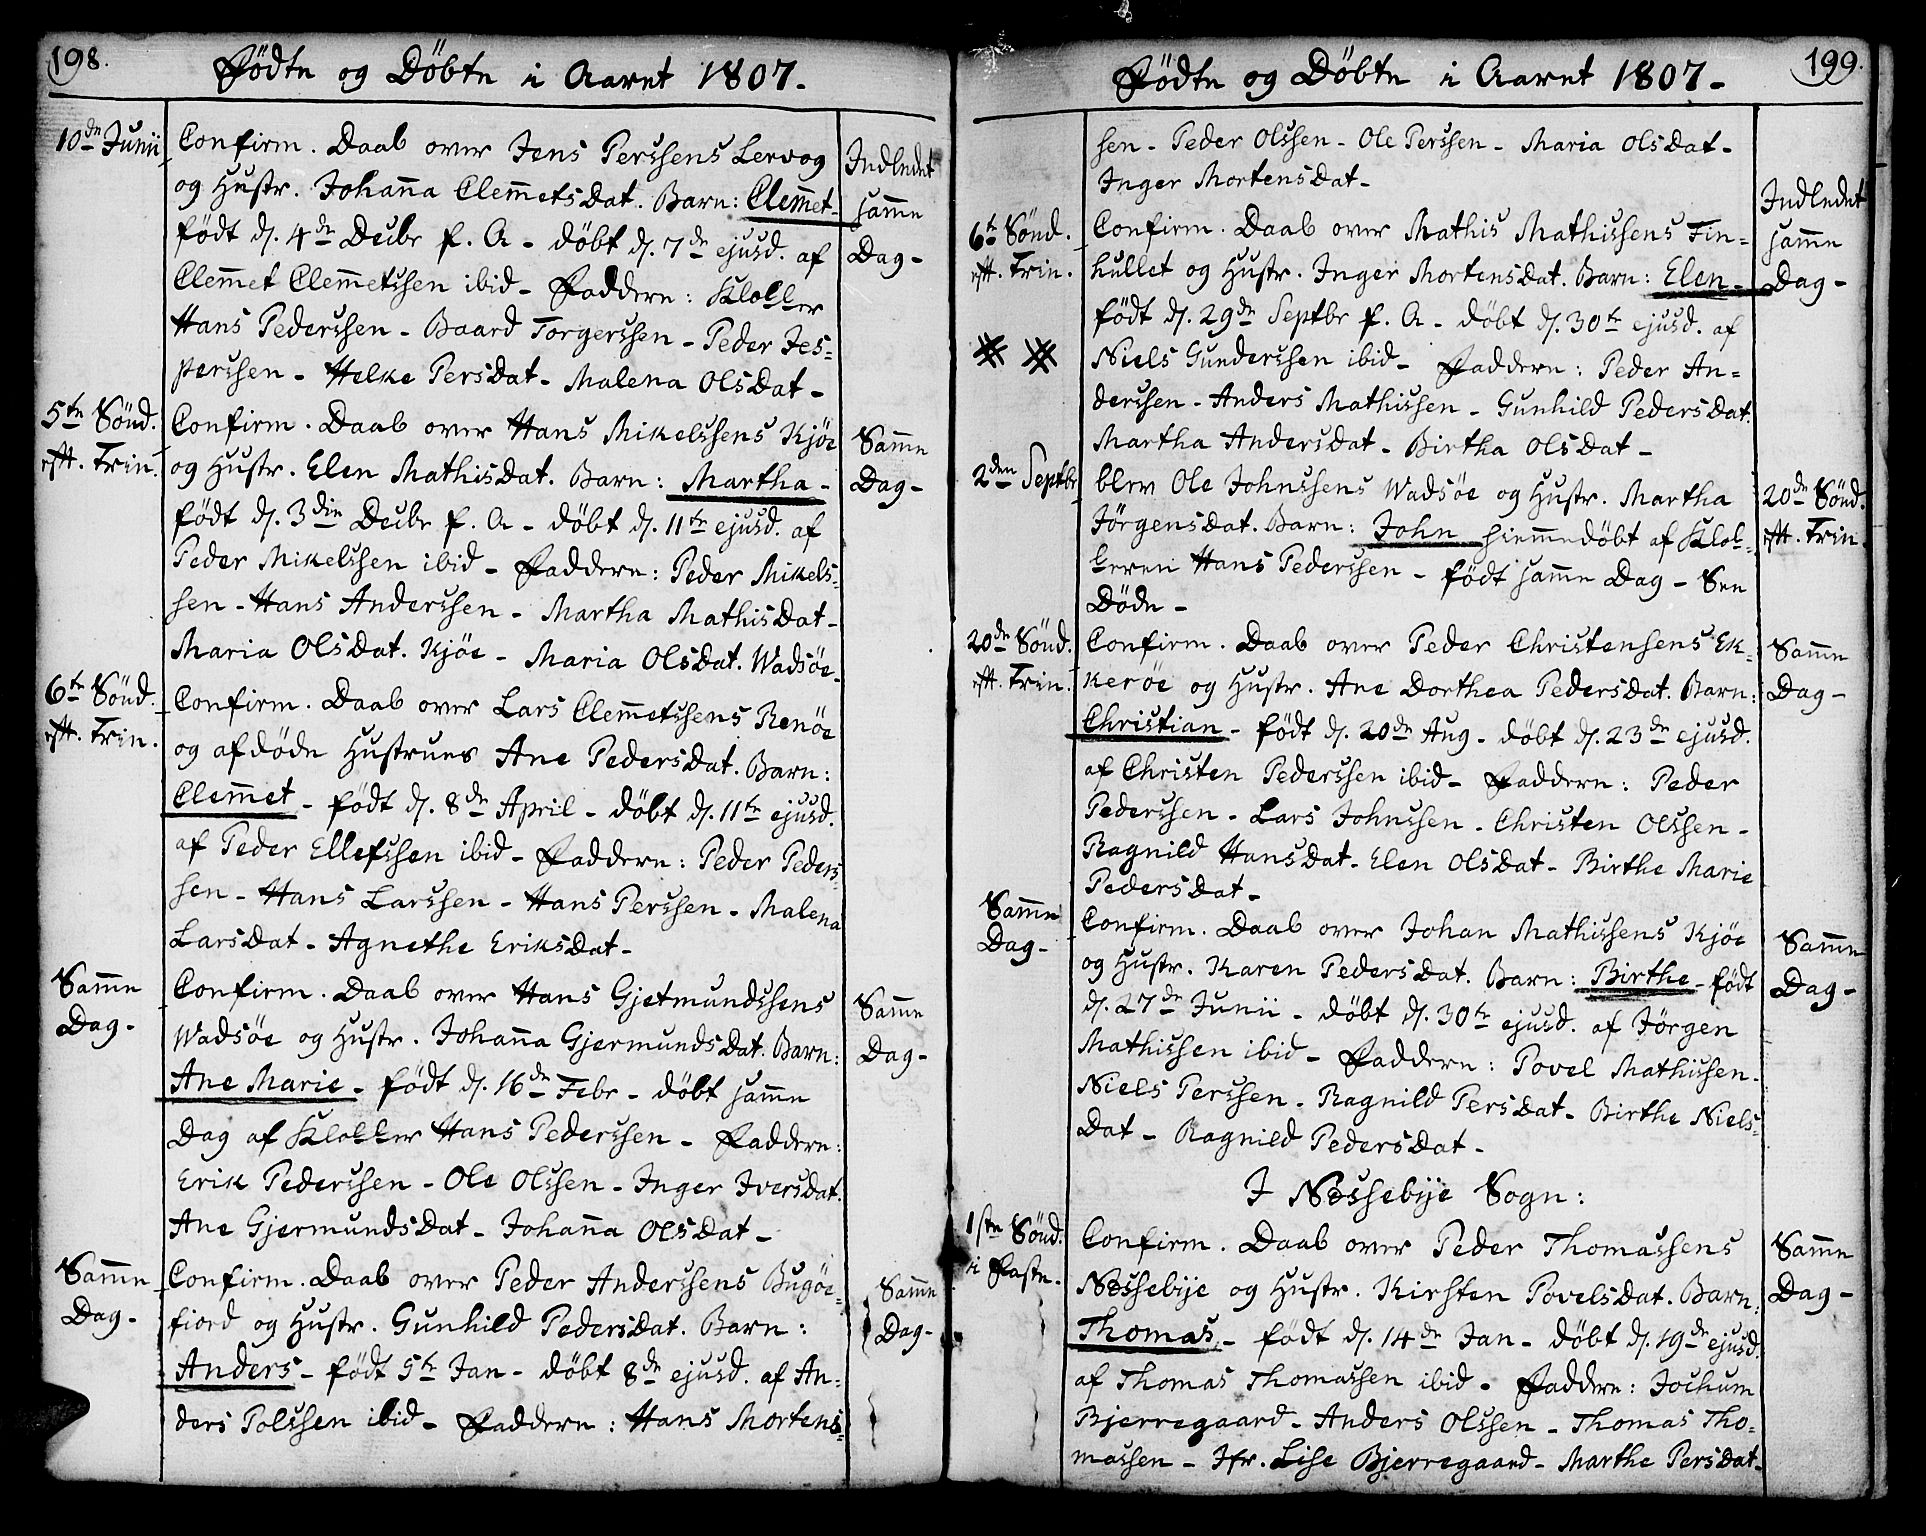 198.
Födte og Döbte i Aaret 1807.
10de Junii
Confirm. Daab over Jens Perssens Lervog
og Hustr. Johan̄a Clem̄etsDat. Barn: Clem̄et-
födt d. 4de Decbr f. A - döbt d. 7de ejusd. af
Clem̄et Clem̄etssen ibid - Faddere: Klokker
Hans Pederssen - Baard Torgerssen - Peder Jes-
perssen - Helke PersDat - Malena OlsDat -
Indledet
sam̄e
Dag -
5te Sönd.
eft. Trin.
Confirm. Daab over Hans Mikelssens Kjöe
og Hustr. Elen MathisDat. Barn: Martha -
födt d. 3die Decbr f. A - döbt d. 11te ejusd. af
Peder Mikelssen ibid - Faddere: Peder Mikels-
sen - Hans Anderssen - Martha MathisDat -
Maria OlsDat. Kjöe - Maria OlsDat. Wadsöe -
Sam̄e
Dag -
6te Sönd.
eft. Trin.
Confirm. Daab over Lars Clem̄etssens Renöe
og afdöde Hustrues Ane PedersDat. Barn:
Clem̄et - födt d. 8de April - döbt d. 11te ejusd.
af Peder Ellefssen ibid - Faddere: Peder Peders-
sen - Hans Larssen - Hans Perssen - Malena
LarsDat - Agnethe EriksDat -
Sam̄e
Dag -
Confirm. Daab over Hans Gjetmundssens
Wadsöe og Hustr. Johan̄a GjermundsDat. Barn:
Ane Marie - födt d. 16de Febr - döbt sam̄e
Dag af Klokker Hans Pederssen - Faddere:
Erik Pederssen - Ole Olssen - Inger IversDat.
Ane GjermundsDat - Johan̄a OlsDat -
Sam̄e
Dag -
Sam̄e
Dag -
Confirm. Daab over Peder Anderssens Bugöe-
fiord og Hustr. Gunhild PedersDat. Barn:
Anders - födt 5te Jan - döbt 8de ejusd. af An-
ders Polssen ibid - Faddere: Hans Mortens-
Sam̄e
Dag -
199.
Födte og Döbte i Aaret 1807 -
sen - Peder Olssen - Ole Perssen - Maria OlsDat -
Inger MortensDat -
6te Sönd.
eft. Trin.
Confirm. Daab over Mathis Mathissens Fin-
hullet og Hustr. Inger MortensDat. Barn: Elen -
födt d. 29de Septbr f. A - döbt d. 30te ejusd. af
Niels Gunderssen ibid - Faddere: Peder An-
derssen - Anders Mathissen - Gunhild PedersDat.
Martha AndersDat - Birtha OlsDat -
Indledet
sam̄e
Dag -
2den Septbr
blev Ole Johnssens Wadsöe og Hustr. Martha
JörgensDat. Barn: John hiem̄edöbt af Klok-
keren Hans Pederssen - födt sam̄e Dag - Sen
Döde -
20de Sönd.
eft. Trin.
20de Sönd.
eft. Trin.
Confirm. Daab over Peder Christensens Ek-
keröe og Hustr. Ane Dorthea PedersDat. Barn:
Christian - födt d. 20de Aug - döbt d. 23de ejusd.
af Christen Pederssen ibid - Faddere: Peder
Pederssen - Lars Johnssen - Christen Olssen -
Ragnild HansDat - Elen OlsDat - Birthe Marie
PedersDat -
Sam̄e
Dag -
Sam̄e
Dag -
Confirm. Daab over Johan Mathissens Kjöe
og Hustr. Karen PedersDat. Barn: Birthe - födt
d. 27de Junii - döbt d. 30te ejusd. af Jörgen
Mathissen ibid - Faddere: Povel Mathissen -
Niels Perssen - Ragnild PersDat - Birthe Niels-
Dat - Ragnild PedersDat -
Sam̄e
Dag -
I Nessebye Sogn:
1ste Sönd.
i Faste.
Confirm. Daab over Peder Thomassens
Nessebye og Hustr. Kirsten PovelsDat. Barn:
Thomas - födt d. 14de Jan - döbt d. 19de ejusd.
af Thomas Thomassen ibid - Faddere: Jochum
Bjerregaard - Anders Olssen - Thomas Tho-
massen - Jfr. Lise Bjerregaard - Marthe PersDat -
Sam̄e
Dag -